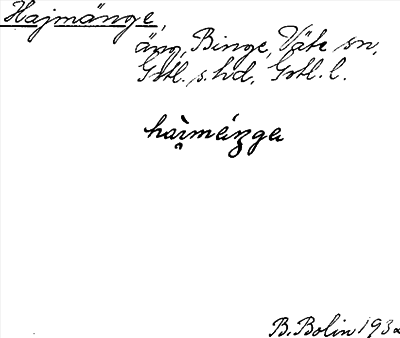 Hajmänge,
äng, Binge, Väte sn,
Gotl. s. hd, Gotl. l.
hai̯mèŋge
B. Bolin 1932